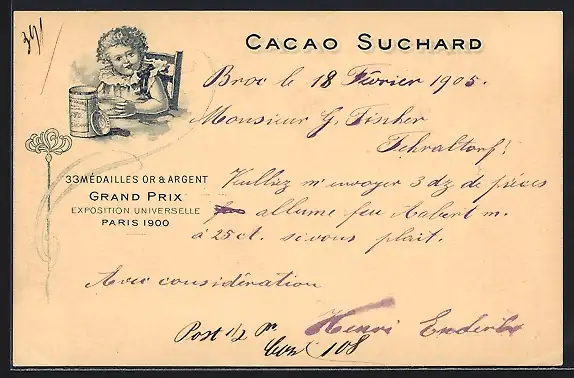 391
CACAO SUCHARD
Broc le 18 Février 1905.
Monsieur G. Fischer
Fehraltorf!
33 MÉDAILLES OR & ARGENT
GRAND PRIX
EXPOSITION UNIVERSELLE
PARIS 1900
Veuillez m'envoyer 3 dz de pièces
allume feu m.
à 25 ct. si vous plait.
Avec considération
Henri
Post 1/2
108